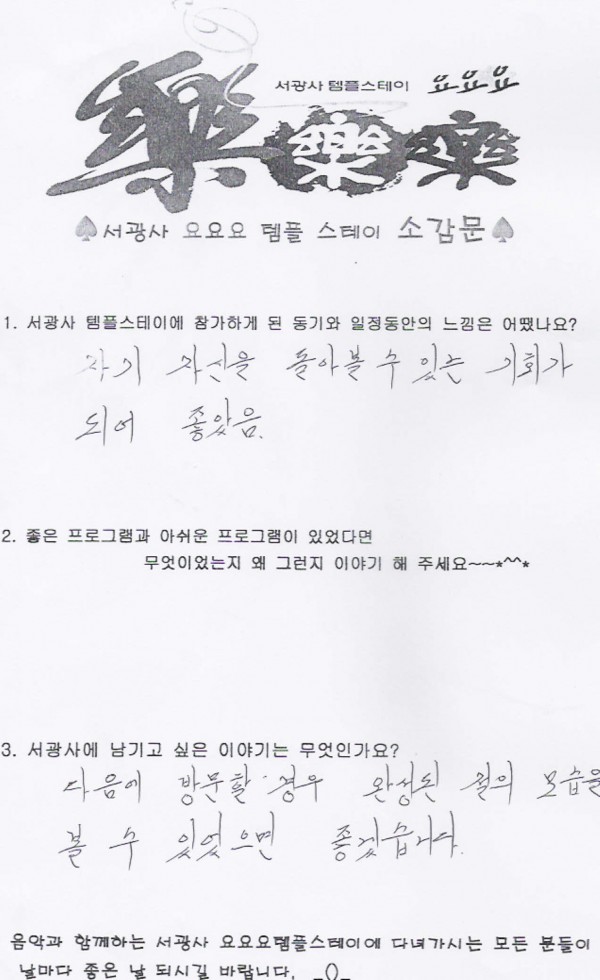 서광사 템플스테이 요요요
樂 樂 樂
♠서광사 요요요 템플 스테이 소감문♠
1. 서광사 템플스테이에 참가하게 된 동기와 일정동안의 느낌은 어땠나요?
자기 자신을 돌아볼 수 있는 기회가
되어 좋았음.
2. 좋은 프로그램과 아쉬운 프로그램이 있었다면
무엇이었는지 왜 그런지 이야기 해 주세요~~*^^*
3. 서광사에 남기고 싶은 이야기는 무엇인가요?
다음에 방문할 경우 완성된 절의 모습을
볼 수 있었으면 좋겠습니다.
음악과 함께하는 서광사 요요요템플스테이에 다녀가시는 모든 분들이
날마다 좋은 날 되시길 바랍니다. _()_